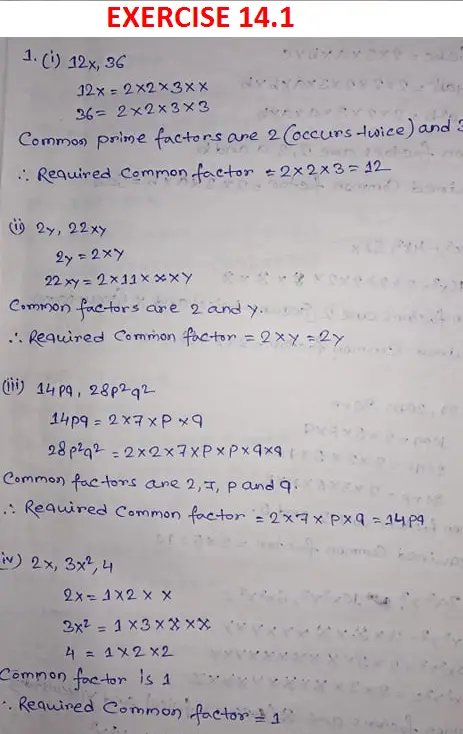 EXERCISE 14.1
1. (i) 12x, 36
12x = 2×2×3×x
36 = 2×2×3×3
Common prime factors are 2 (occurs twice) and 3
∴ Required Common factor = 2×2×3 = 12
(ii) 2y, 22xy
2y = 2×y
22xy = 2×11×x×y
Common factors are 2 and y.
∴ Required Common factor = 2×y = 2y
(iii) 14pq, 28p²q²
14pq = 2×7×p×q
28p²q² = 2×2×7×p×p×q×q
Common factors are 2, 7, p and q.
∴ Required Common factor = 2×7×p×q = 14pq
iv) 2x, 3x², 4
2x = 1×2×x
3x² = 1×3×x×x
4 = 1×2×2
Common factor is 1
∴ Required Common factor = 1